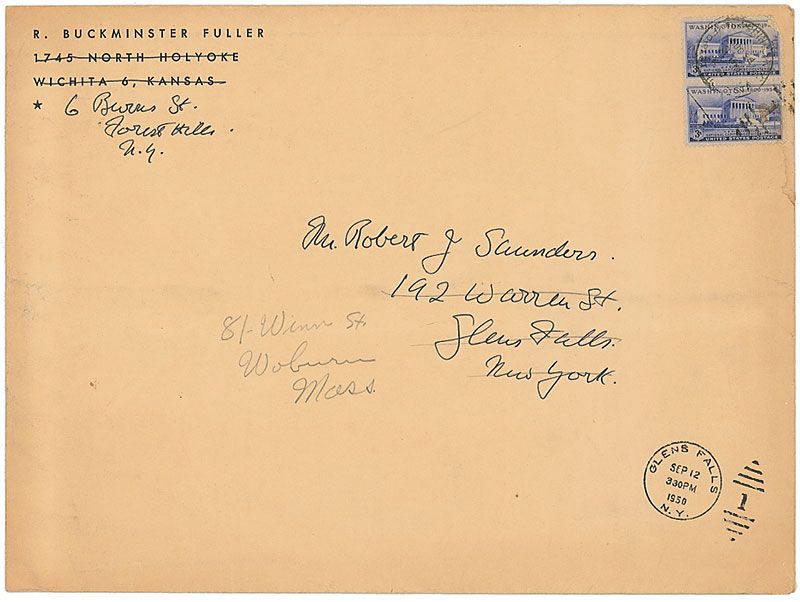 R. BUCKMINSTER FULLER
1745 NORTH HOLYOKE
WICHITA 6, KANSAS
* 6 Burns St.
Forest Hills.
N.Y.
WASHINGTON
3¢
UNITED STATES POSTAGE
WASHINGTON 1800-1950
3¢
UNITED STATES POSTAGE
Mr. Robert J Saunders.
192 Warren St.
Glens Falls.
New York.
81 Winn St
Woburn
Mass
GLENS FALLS
SEP 12
330PM
1950
N.Y.
1